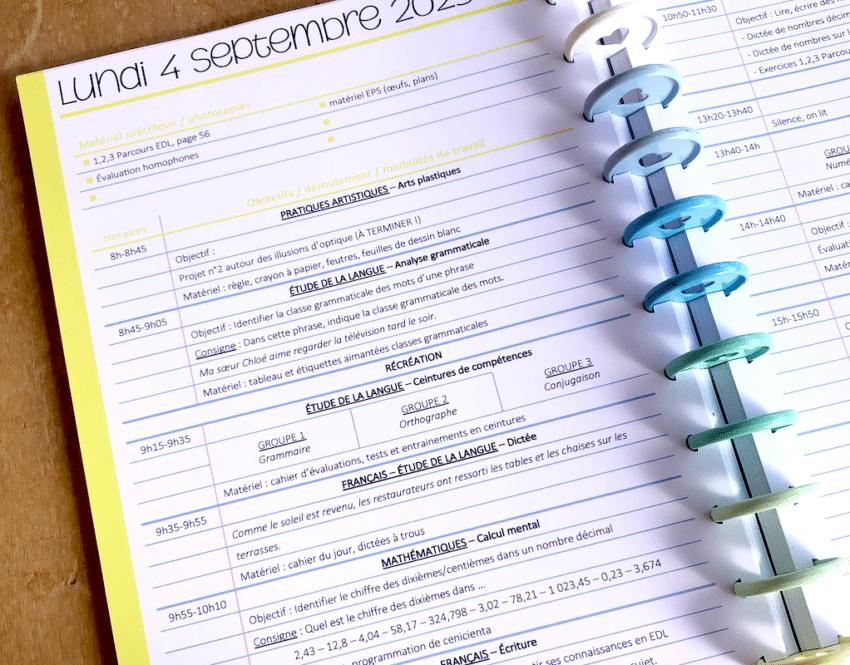 Lundi 4 septembre 2023
Matériel spécifique / photocopies
1,2,3 Parcours EDL, page 56
matériel EPS (œufs, plans)
Évaluation homophones
Horaires
Objectifs / déroulement / modalités de travail
8h-8h45
PRATIQUES ARTISTIQUES – Arts plastiques
Objectif :
Projet n°2 autour des illusions d'optique (À TERMINER !)
Matériel : règle, crayon à papier, feutres, feuilles de dessin blanc
8h45-9h05
ÉTUDE DE LA LANGUE – Analyse grammaticale
Objectif : Identifier la classe grammaticale des mots d'une phrase
Consigne : Dans cette phrase, indique la classe grammaticale des mots.
Ma sœur Chloé aime regarder la télévision tard le soir.
Matériel : tableau et étiquettes aimantées classes grammaticales
RÉCRÉATION
9h15-9h35
ÉTUDE DE LA LANGUE – Ceintures de compétences
GROUPE 1 GROUPE 2 GROUPE 3
Grammaire Orthographe Conjugaison
Matériel : cahier d'évaluations, tests et entrainements en ceintures
9h35-9h55
FRANÇAIS – ÉTUDE DE LA LANGUE – Dictée
Comme le soleil est revenu, les restaurateurs ont ressorti les tables et les chaises sur les
terrasses.
Matériel : cahier du jour, dictées à trous
9h55-10h10
MATHÉMATIQUES – Calcul mental
Objectif : Identifier le chiffre des dixièmes/centièmes dans un nombre décimal
Consigne : Quel est le chiffre des dixièmes dans ...
2,43 – 12,8 – 4,04 – 58,17 – 324,798 – 3,02 – 78,21 – 1 023,45 – 0,23 – 3,674
programmation de cenicienta
FRANÇAIS – Écriture
ses connaissances en EDL
sujet.
10h50-11h30
Objectif : Lire, écrire des
- Dictée de nombres décim
- Dictée de nombres sur l
- Exercices 1,2,3 Parcours
13h20-13h40
Silence, on lit
13h40-14h
GROU
Numé
Matériel : ca
14h-14h40
Objectif :
Évaluati
Matér
15h-15h50